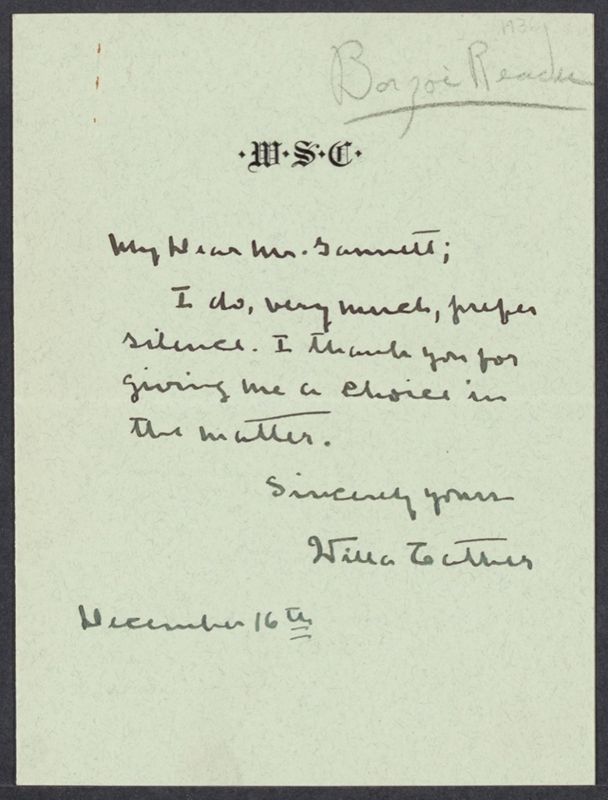 Borzoi Reader
·W·S·C·
My Dear Mr. Gannett;
I do, very much, prefer
silence. I thank you for
giving me a choice in
the matter.
Sincerely yours
Willa Cather
December 16th